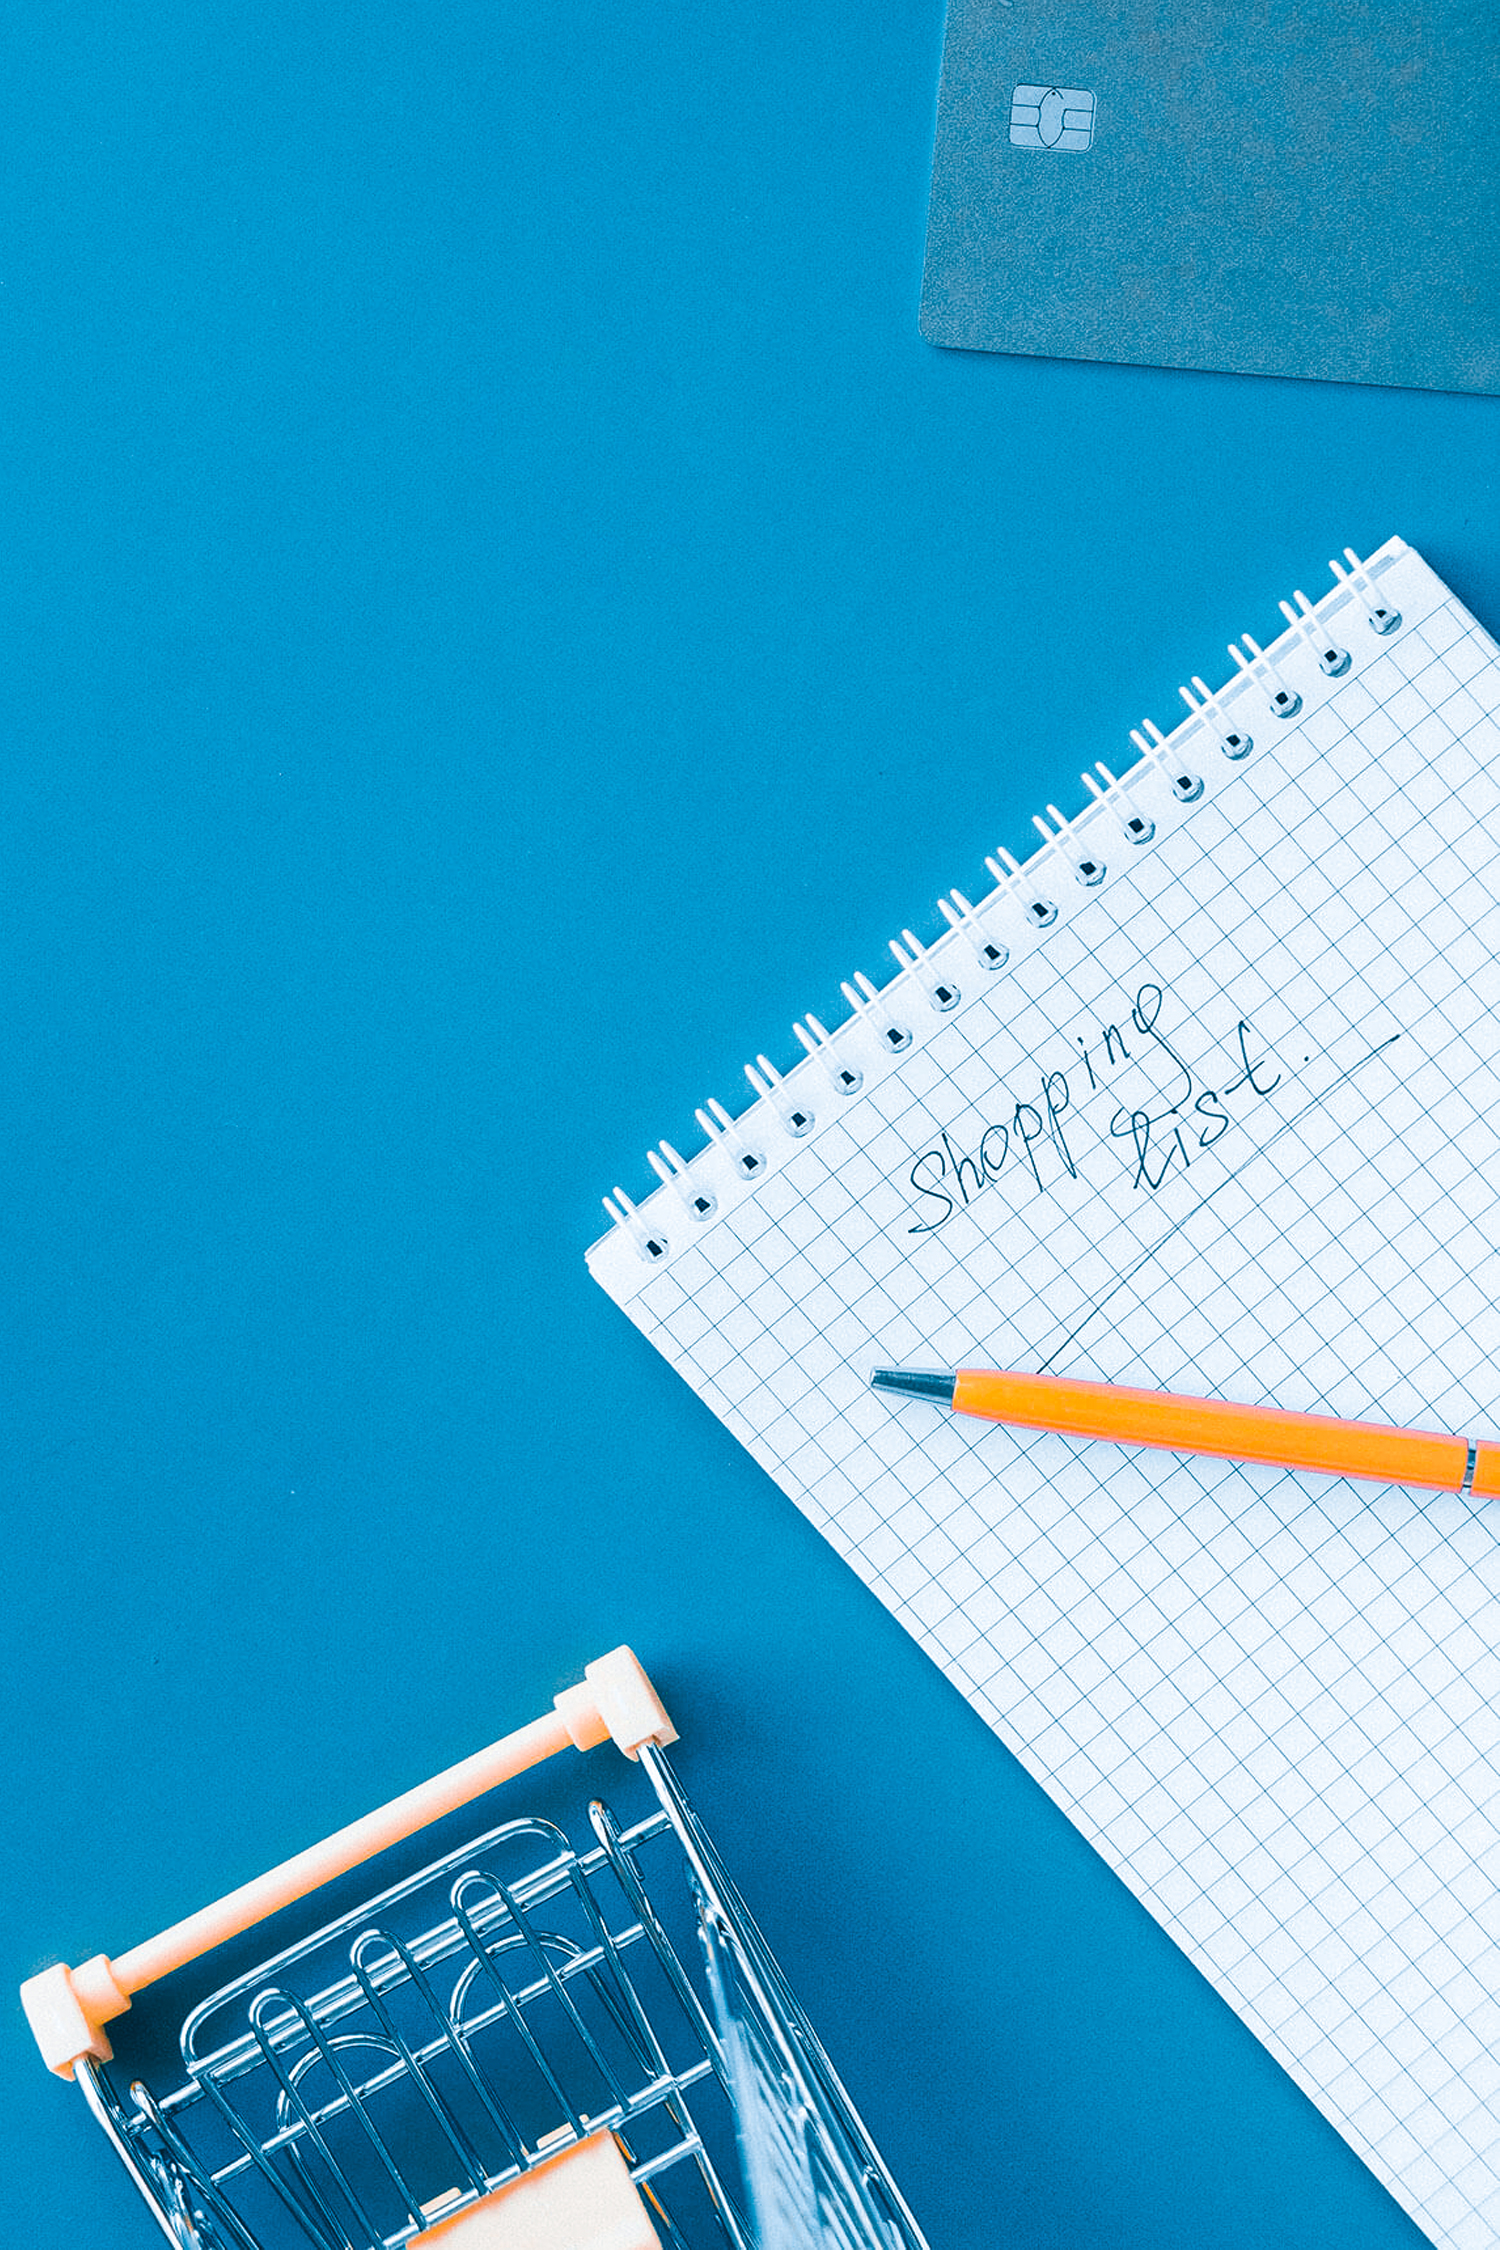 Shopping
List.